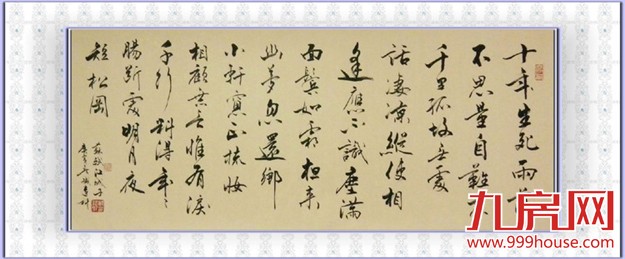 十年生死兩
不思量自難
千里孤坟無處
話凄涼縱使相
逢應不識塵滿
面鬢如霜夜来
幽夢忽還鄉
小軒窗正梳妝
相顧無言惟有淚
千行料得年々
腸斷處明月夜
短松岡
蘇軾江城子
九房网
www.999house.com